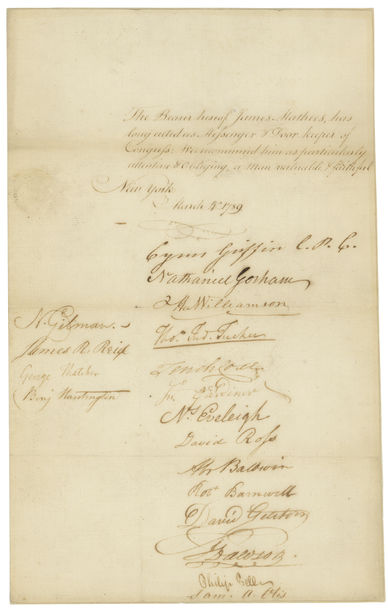 The Bearer hereof James Mathers, has
long acted as Messenger & Door keeper of
Congress: We recommend him as particularly
attentive & Obliging, a Man valuable & faithful
New York
March 4th 1789
Cyrus Griffin C. P. C.
Nathaniel Gorham
H. Williamson
Thos. Tud. Tucker
Tench Coxe
Jn. Gardiner
Ns. Eveleigh
David Ross
Abr Baldwin
Robt Barnwell
David Gelston
J Dawson
Philip Pell
Sam. A. Otis
N. Gilman
James R. Reid
George Thatcher
Benj Huntington